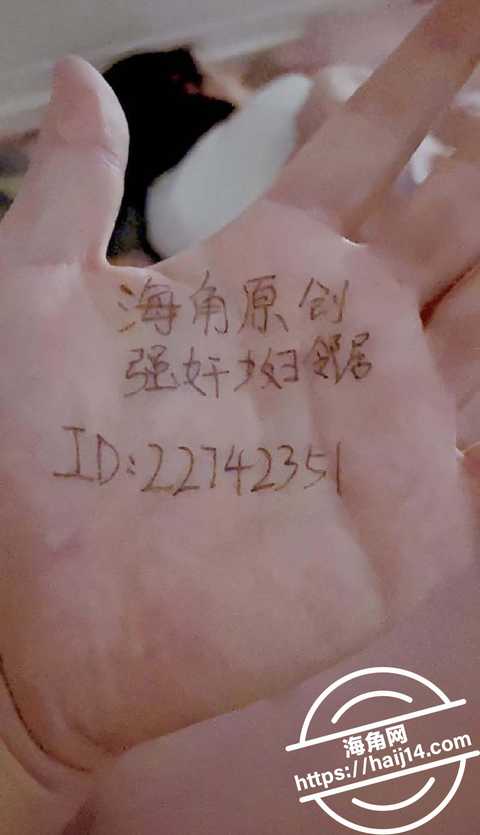 海角原创
强奸少妇邻居
ID:22742351
海角网
https://haij14.com